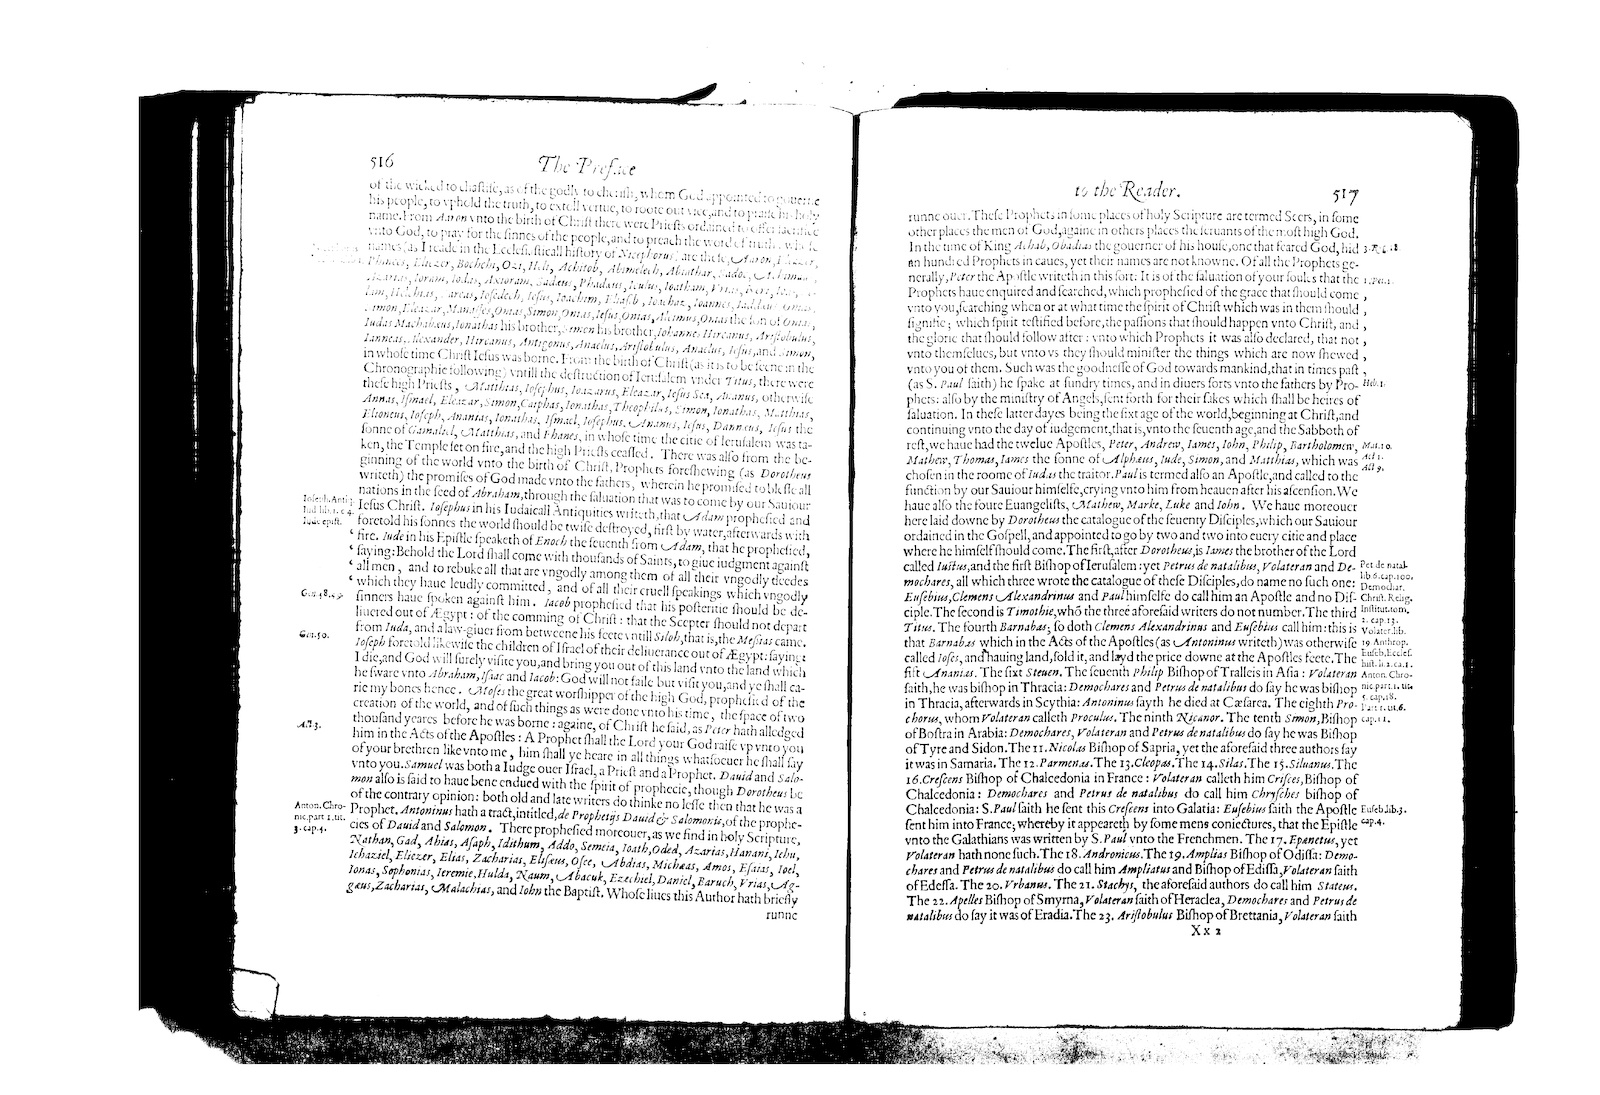 516
The Preface
of the wicked to chastise, as of the godly to cherish, whom God appointed to gouerne
his people, to vphold the truth, to extoll vertue, to roote out vice, and to praise his holy
name. From Aaron vnto the birth of Christ there were Priests ordained to offer sacrifice
vnto God, to pray for the sinnes of the people, and to preach the word of truth, whose
names (as I reade in the Ecclesiasticall history of Nicephorus) are these, Aaron, Eleazer,
Phinees, Eliezer, Bochchi, Ozi, Heli, Achitob, Abimelech, Abiathar, Sadoc,
Azarias, Ioram, Iodas, Axioram, Sadæus, Phadæus, Iulus, Ioatham, Vrias,
Helchias, Iosedech, Iesus, Ioachim, Eliasib, Ioachaz, Ioannes, Iaddus, Onias,
Simon, Eleazar, Manasses, Onias, Simon, Onias, Iesus, Onias, Alcimus, Onias the son of Onias,
Iudas Machabæus, Ionathas his brother, Simon his brother, Iohannes Hircanus, Aristobulus,
Ianneas, Alexander, Hircanus, Antigonus, Anaelus, Aristobulus, Anaelus, Iesus, and Simon,
in whose time Christ Iesus was borne. From the birth of Christ (as it is to be seene in the
Chronographie following) vntill the destruction of Ierusalem vnder Titus, there were
these high Priests, Matthias, Iosephus, Ioazarus, Eleazar, Iesus Sea, Ananus, otherwise
Annas, Ismael, Eleazar, Simon, Caiphas, Ionathas, Theophilus, Simon, Ionathas, Matthias,
Elioneus, Ioseph, Ananias, Ionathas, Ismael, Iosephus, Ananus, Iesus, Damneus, Iesus the
sonne of Gamaliel, Matthias, and Phanes, in whose time the citie of Ierusalem was ta-
ken, the Temple set on fire, and the high Priests ceassed. There was also from the be-
ginning of the world vnto the birth of Christ, Prophets foreshewing (as Dorotheus
writeth) the promises of God made vnto the fathers, wherein he promised to blesse all
nations in the seed of Abraham, through the saluation that was to come by our Sauiour
Iesus Christ. Iosephus in his Iudaicall Antiquities writeth, that Adam prophesied and
foretold his sonnes the world should be twise destroyed, first by water, afterwards with
fire. Iude in his Epistle speaketh of Enoch the seuenth from Adam, that he prophesied,
saying: Behold the Lord shall come with thousands of Saints, to giue iudgment against
all men, and to rebuke all that are vngodly among them of all their vngodly deedes
which they haue leudly committed, and of all their cruell speakings which vngodly
sinners haue spoken against him. Iacob prophesied that his posteritie should be de-
liuered out of Ægypt: of the comming of Christ: that the Scepter should not depart
from Iuda, and a law-giuer from betweene his feete vntill Siloh, that is, the Messias came.
Ioseph foretold likewise the children of Israel of their deliuerance out of Ægypt: saying:
I die, and God will surely visite you, and bring you out of this land vnto the land which
he sware vnto Abraham, Isaac and Iacob: God will not faile but visit you, and ye shall ca-
rie my bones hence. Moses the great worshipper of the high God, prophesied of the
creation of the world, and of such things as were done vnto his time, the space of two
thousand yeares before he was borne: againe, of Christ he said, as Peter hath alledged
him in the Acts of the Apostles: A Prophet shall the Lord your God raise vp vnto you
of your brethren like vnto me, him shall ye heare in all things whatsoeuer he shall say
vnto you. Samuel was both a Iudge ouer Israel, a Priest and a Prophet. Dauid and Salo-
mon also is said to haue bene endued with the spirit of prophecie, though Dorotheus be
of the contrary opinion: both old and late writers do thinke no lesse then that he was a
Prophet. Antoninus hath a tract, intitled, de Prophetijs Dauid & Salomonis, of the prophe-
cies of Dauid and Salomon. There prophesied moreouer, as we find in holy Scripture,
Nathan, Gad, Ahias, Asaph, Idithum, Addo, Semeia, Ioath, Oded, Azarias, Hanani, Iehu,
Ichaziel, Eliezer, Elias, Zacharias, Elisæus, Osee, Abdias, Michæas, Amos, Esaias, Ioel,
Ionas, Sophonias, Ieremie, Hulda, Naum, Abacuk, Ezechiel, Daniel, Baruch, Vrias, Ag-
gæus, Zacharias, Malachias, and Iohn the Baptist. Whose liues this Author hath briefly
runne
Ioseph. Anti-
Iud. lib. 1. c. 4.
Iude epist.
Gen. 48. 49
Gen. 50.
Act. 3.
Anton. Chro-
nic. part 1. tit.
3. cap. 4.
to the Reader.
517
runne ouer. These Prophets in some places of holy Scripture are termed Seers, in some
other places the men of God, againe in others places the seruants of the most high God.
In the time of King Achab, Obadias the gouerner of his house, one that feared God, hid
an hundred Prophets in caues, yet their names are not knowne. Of all the Prophets ge-
nerally, Peter the Apostle writeth in this sort: It is of the saluation of your soules that the
Prophets haue enquired and searched, which prophesied of the grace that should come
vnto you, searching when or at what time the spirit of Christ which was in them should
signifie; which spirit testified before, the passions that should happen vnto Christ, and
the glorie that should follow after: vnto which Prophets it was also declared, that not
vnto themselues, but vnto vs they should minister the things which are now shewed
vnto you of them. Such was the goodnesse of God towards mankind, that in times past
(as S. Paul saith) he spake at sundry times, and in diuers sorts vnto the fathers by Pro-
phets: also by the ministry of Angels, sent forth for their sakes which shall be heires of
saluation. In these latter dayes being the sixt age of the world, beginning at Christ, and
continuing vnto the day of iudgement, that is, vnto the seuenth age, and the Sabboth of
rest, we haue had the twelue Apostles, Peter, Andrew, Iames, Iohn, Philip, Bartholomew,
Mathew, Thomas, Iames the sonne of Alphæus, Iude, Simon, and Matthias, which was
chosen in the roome of Iudas the traitor. Paul is termed also an Apostle, and called to the
function by our Sauiour himselfe, crying vnto him from heauen after his ascension. We
haue also the foure Euangelists, Mathew, Marke, Luke and Iohn. We haue moreouer
here laid downe by Dorotheus the catalogue of the seuenty Disciples, which our Sauiour
ordained in the Gospell, and appointed to go by two and two into euery citie and place
where he himself should come. The first, after Dorotheus, is Iames the brother of the Lord
called Iustus, and the first Bishop of Ierusalem: yet Petrus de natalibus, Volateran and De-
mochares, all which three wrote the catalogue of these Disciples, do name no such one:
Eusebius, Clemens Alexandrinus and Paul himselfe do call him an Apostle and no Dis-
ciple. The second is Timothie, whō the three aforesaid writers do not number. The third
Titus. The fourth Barnabas; so doth Clemens Alexandrinus and Eusebius call him: this is
that Barnabas which in the Acts of the Apostles (as Antoninus writeth) was otherwise
called Ioses, and hauing land, sold it, and layd the price downe at the Apostles feete. The
fift Ananias. The sixt Steuen. The seuenth Philip Bishop of Tralleis in Asia: Volateran
saith, he was bishop in Thracia: Demochares and Petrus de natalibus do say he was bishop
in Thracia, afterwards in Scythia: Antoninus sayth he died at Cæsarea. The eighth Pro-
chorus, whom Volateran calleth Proculus. The ninth Nicanor. The tenth Simon, Bishop
of Bostra in Arabia: Demochares, Volateran and Petrus de natalibus do say he was Bishop
of Tyre and Sidon. The 11. Nicolas Bishop of Sapria, yet the aforesaid three authors say
it was in Samaria. The 12. Parmenas. The 13. Cleopas. The 14. Silas. The 15. Siluanus. The
16. Crescens Bishop of Chalcedonia in France: Volateran calleth him Crisces, Bishop of
Chalcedonia: Demochares and Petrus de natalibus do call him Chrysches bishop of
Chalcedonia: S. Paul saith he sent this Crescens into Galatia: Eusebius saith the Apostle
sent him into France; whereby it appeareth by some mens coniectures, that the Epistle
vnto the Galathians was written by S. Paul vnto the Frenchmen. The 17. Epænetus, yet
Volateran hath none such. The 18. Andronicus. The 19. Amplias Bishop of Odissa: Demo-
chares and Petrus de natalibus do call him Ampliatus and Bishop of Edissa, Volateran saith
of Edessa. The 20. Vrbanus. The 21. Stachys, the aforesaid authors do call him Stateus.
The 22. Apelles Bishop of Smyrna, Volateran saith of Heraclea, Demochares and Petrus de
natalibus do say it was of Eradia. The 23. Aristobulus Bishop of Brettania, Volateran saith
Xx 2
1. Pet. 1.
Heb. 1.
Mat. 10.
Act. 1.
Act. 9.
Pet. de natal.
lib. 6. cap. 100.
Demochar.
Christ. Relig.
Institut. tom.
2. cap. 13.
Volater. lib.
19 Anthrop.
Euseb. Eccles.
hist. li. 2. ca. 1.
Anton. Chro-
nic. part. 1. tit.
5. cap. 18.
Part 1. tit. 6.
cap. 11.
Euseb. lib. 3.
cap. 4.